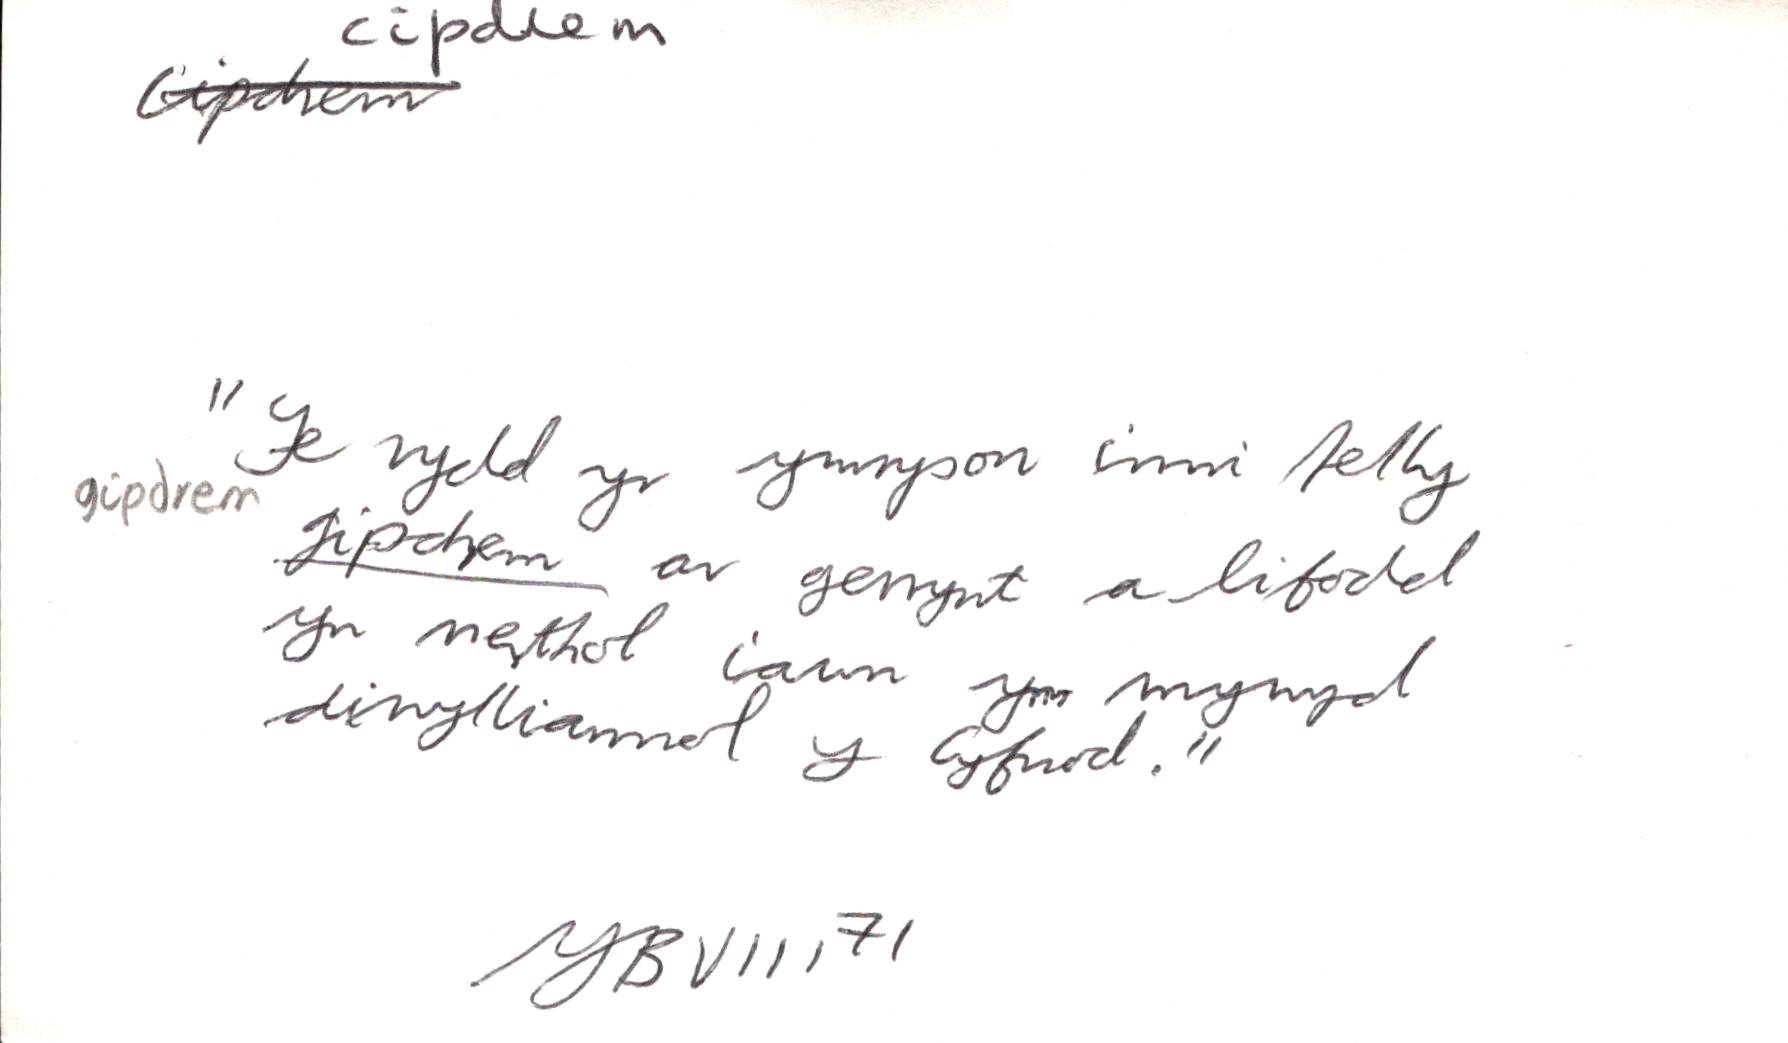 cipdrem
Gipdrem
"Fe rydd yr ymryson inni felly
gipdrem
gipdrem ar gerrynt a lifodd
yn nerthol iawn ym mywyd
diwylliannol y cyfnod."
YB VIII, 71